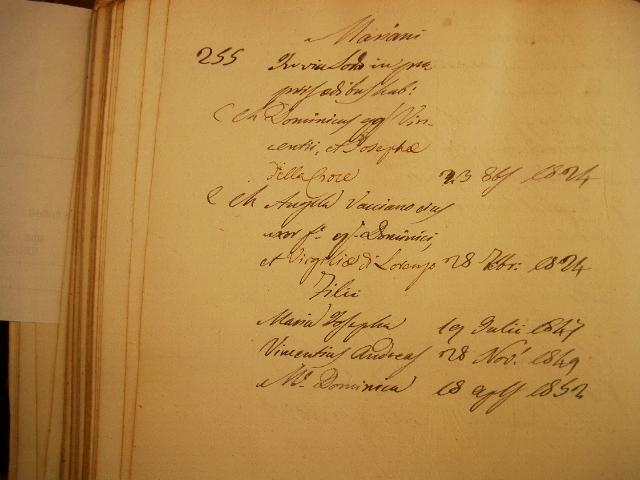 Mariani
255 In via Sod in pra
prijs ædibus hab:
C M Dominicus qq Vin-
centii, et Josephæ
Della Croce 23 8bs 1824
C M Angela Vacciano ejus
uxor f. q. Dominici,
et Virgiliæ di Lorenzo 28 7br: 1824
Filii
Maria Josepha 19 Julii 1847
Vincentius Andreas 28 Nov. 1849
Ma Dominica 18 aplis 1852